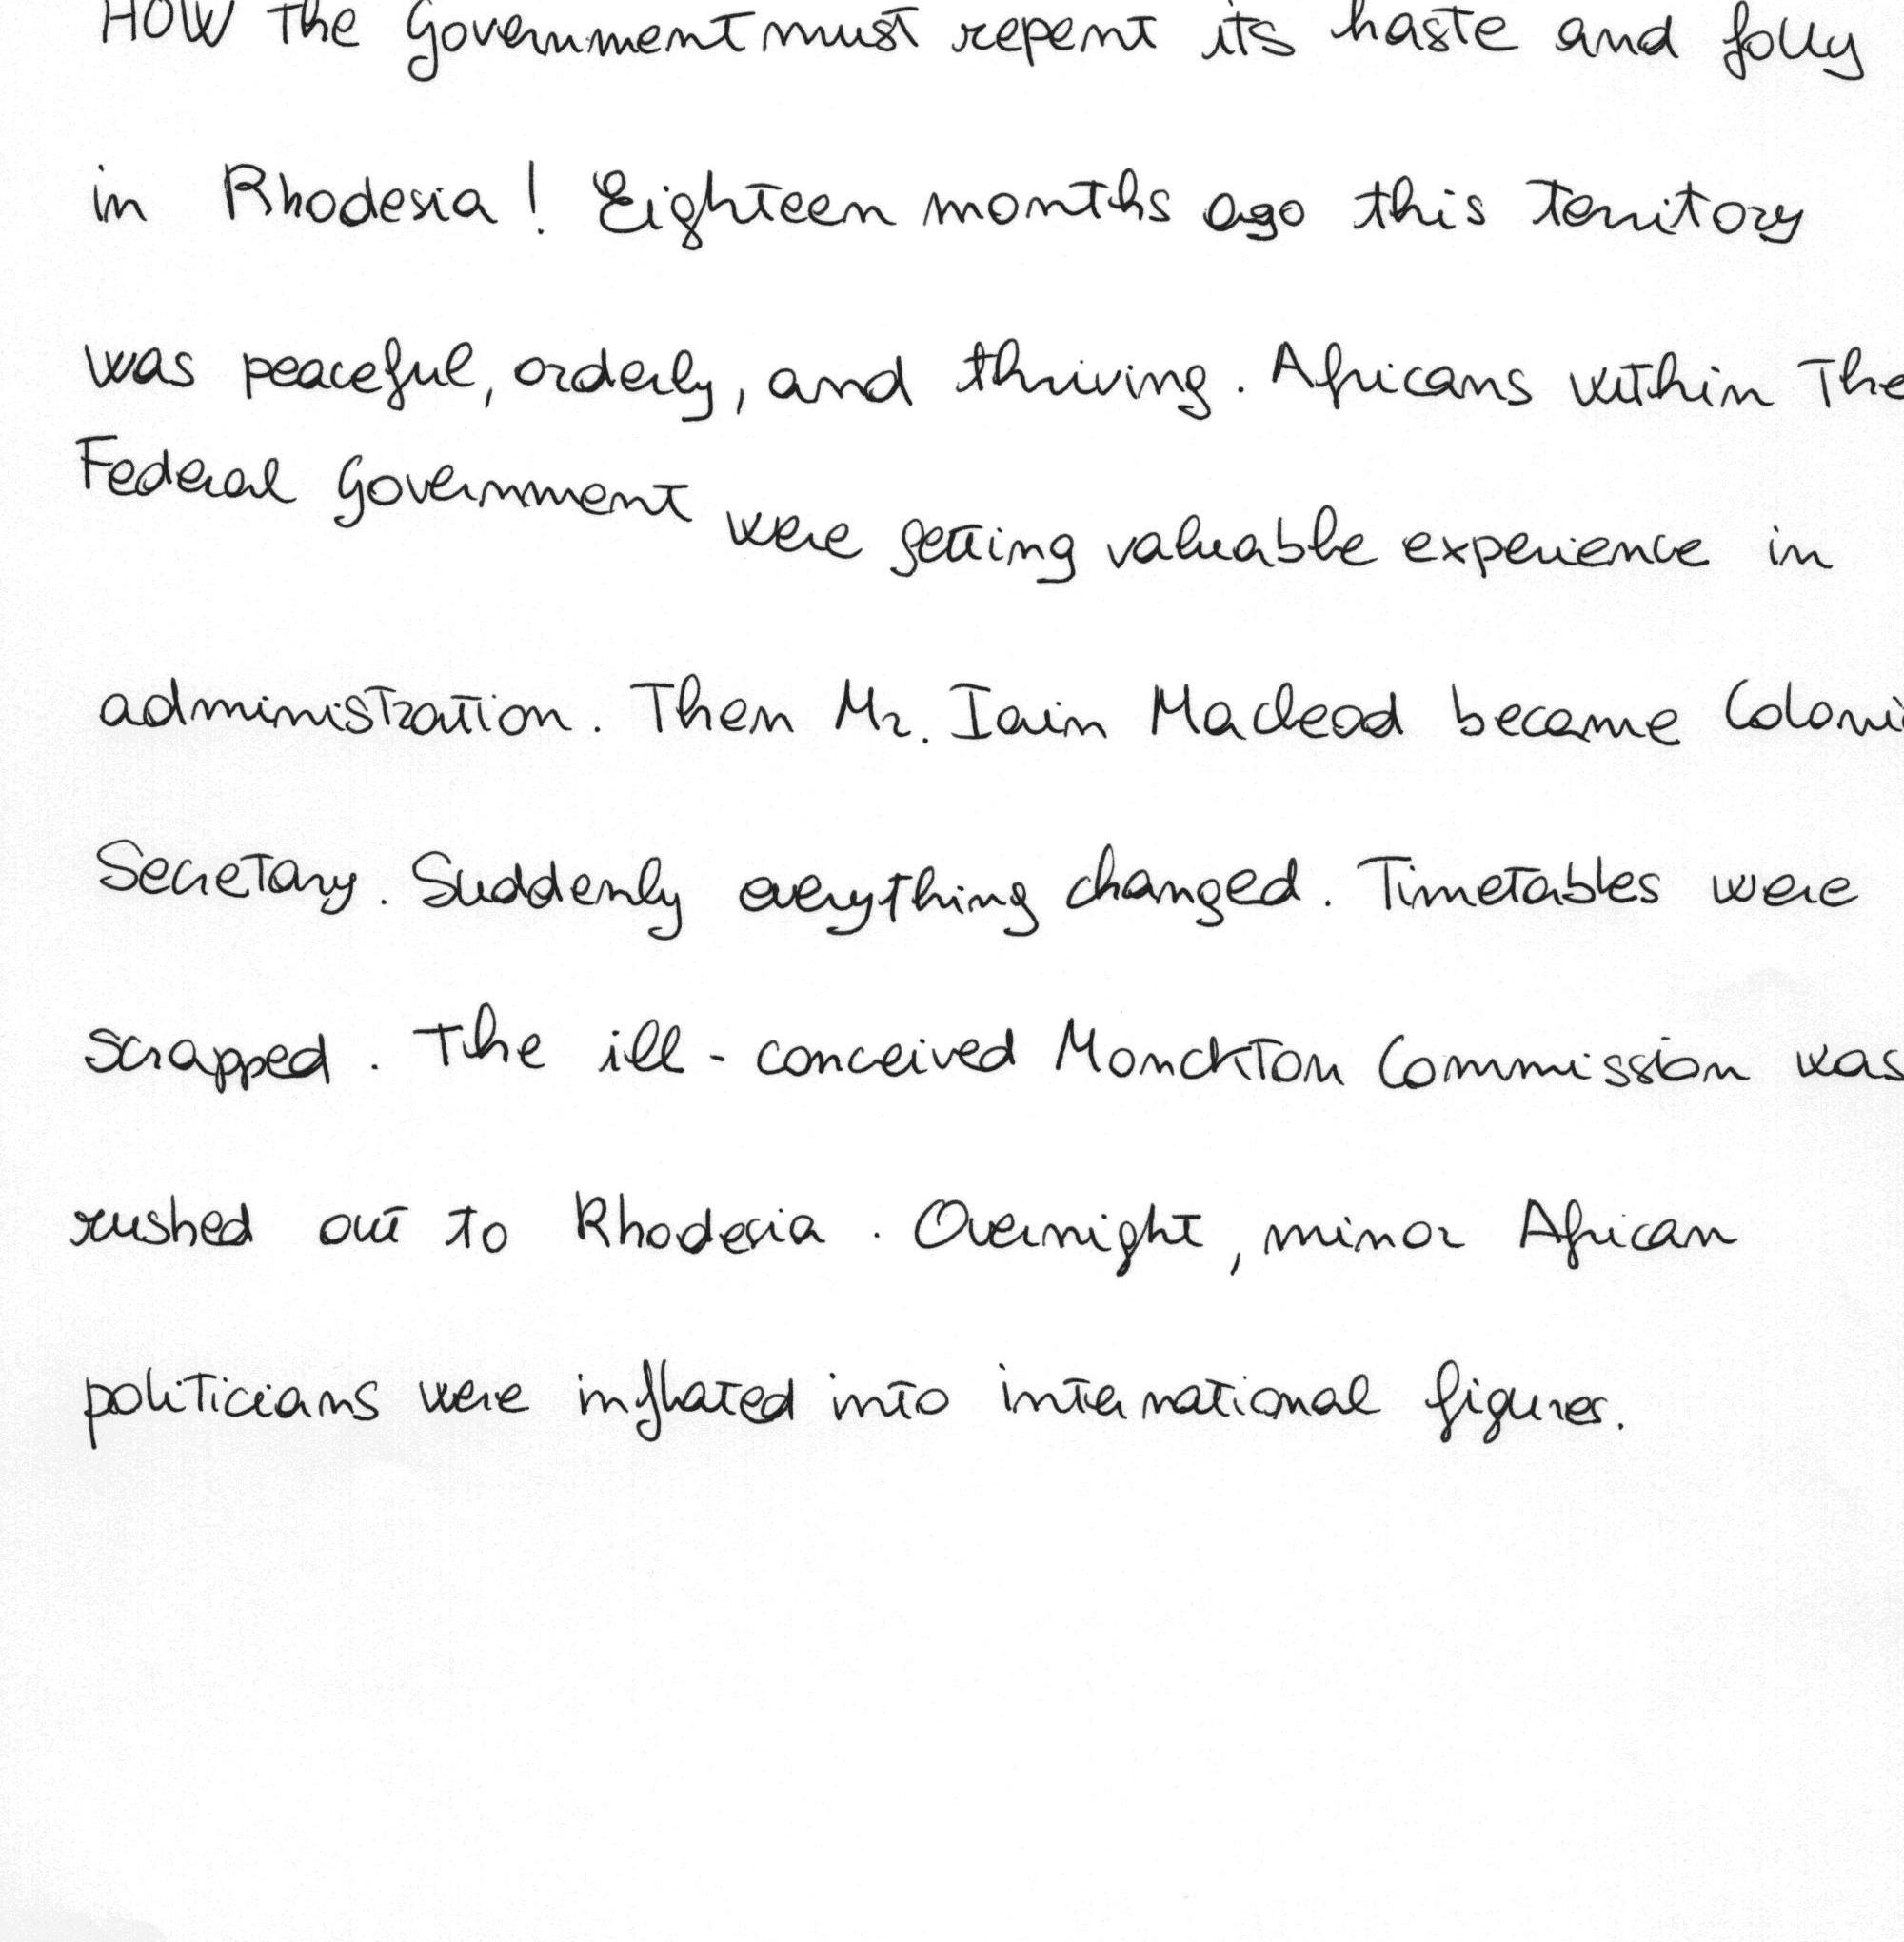 HOW the Government must repent its haste and folly
in Rhodesia! Eighteen months ago this territory
was peaceful, orderly, and thriving. Africans within the
Federal Government were getting valuable experience in
administration. Then Mr. Iain Macleod became Coloni
Secretary. Suddenly everything changed. Timetables were
scrapped. The ill-conceived Monckton Commission was
rushed out to Rhodesia. Overnight, minor African
politicians were inflated into international figures.